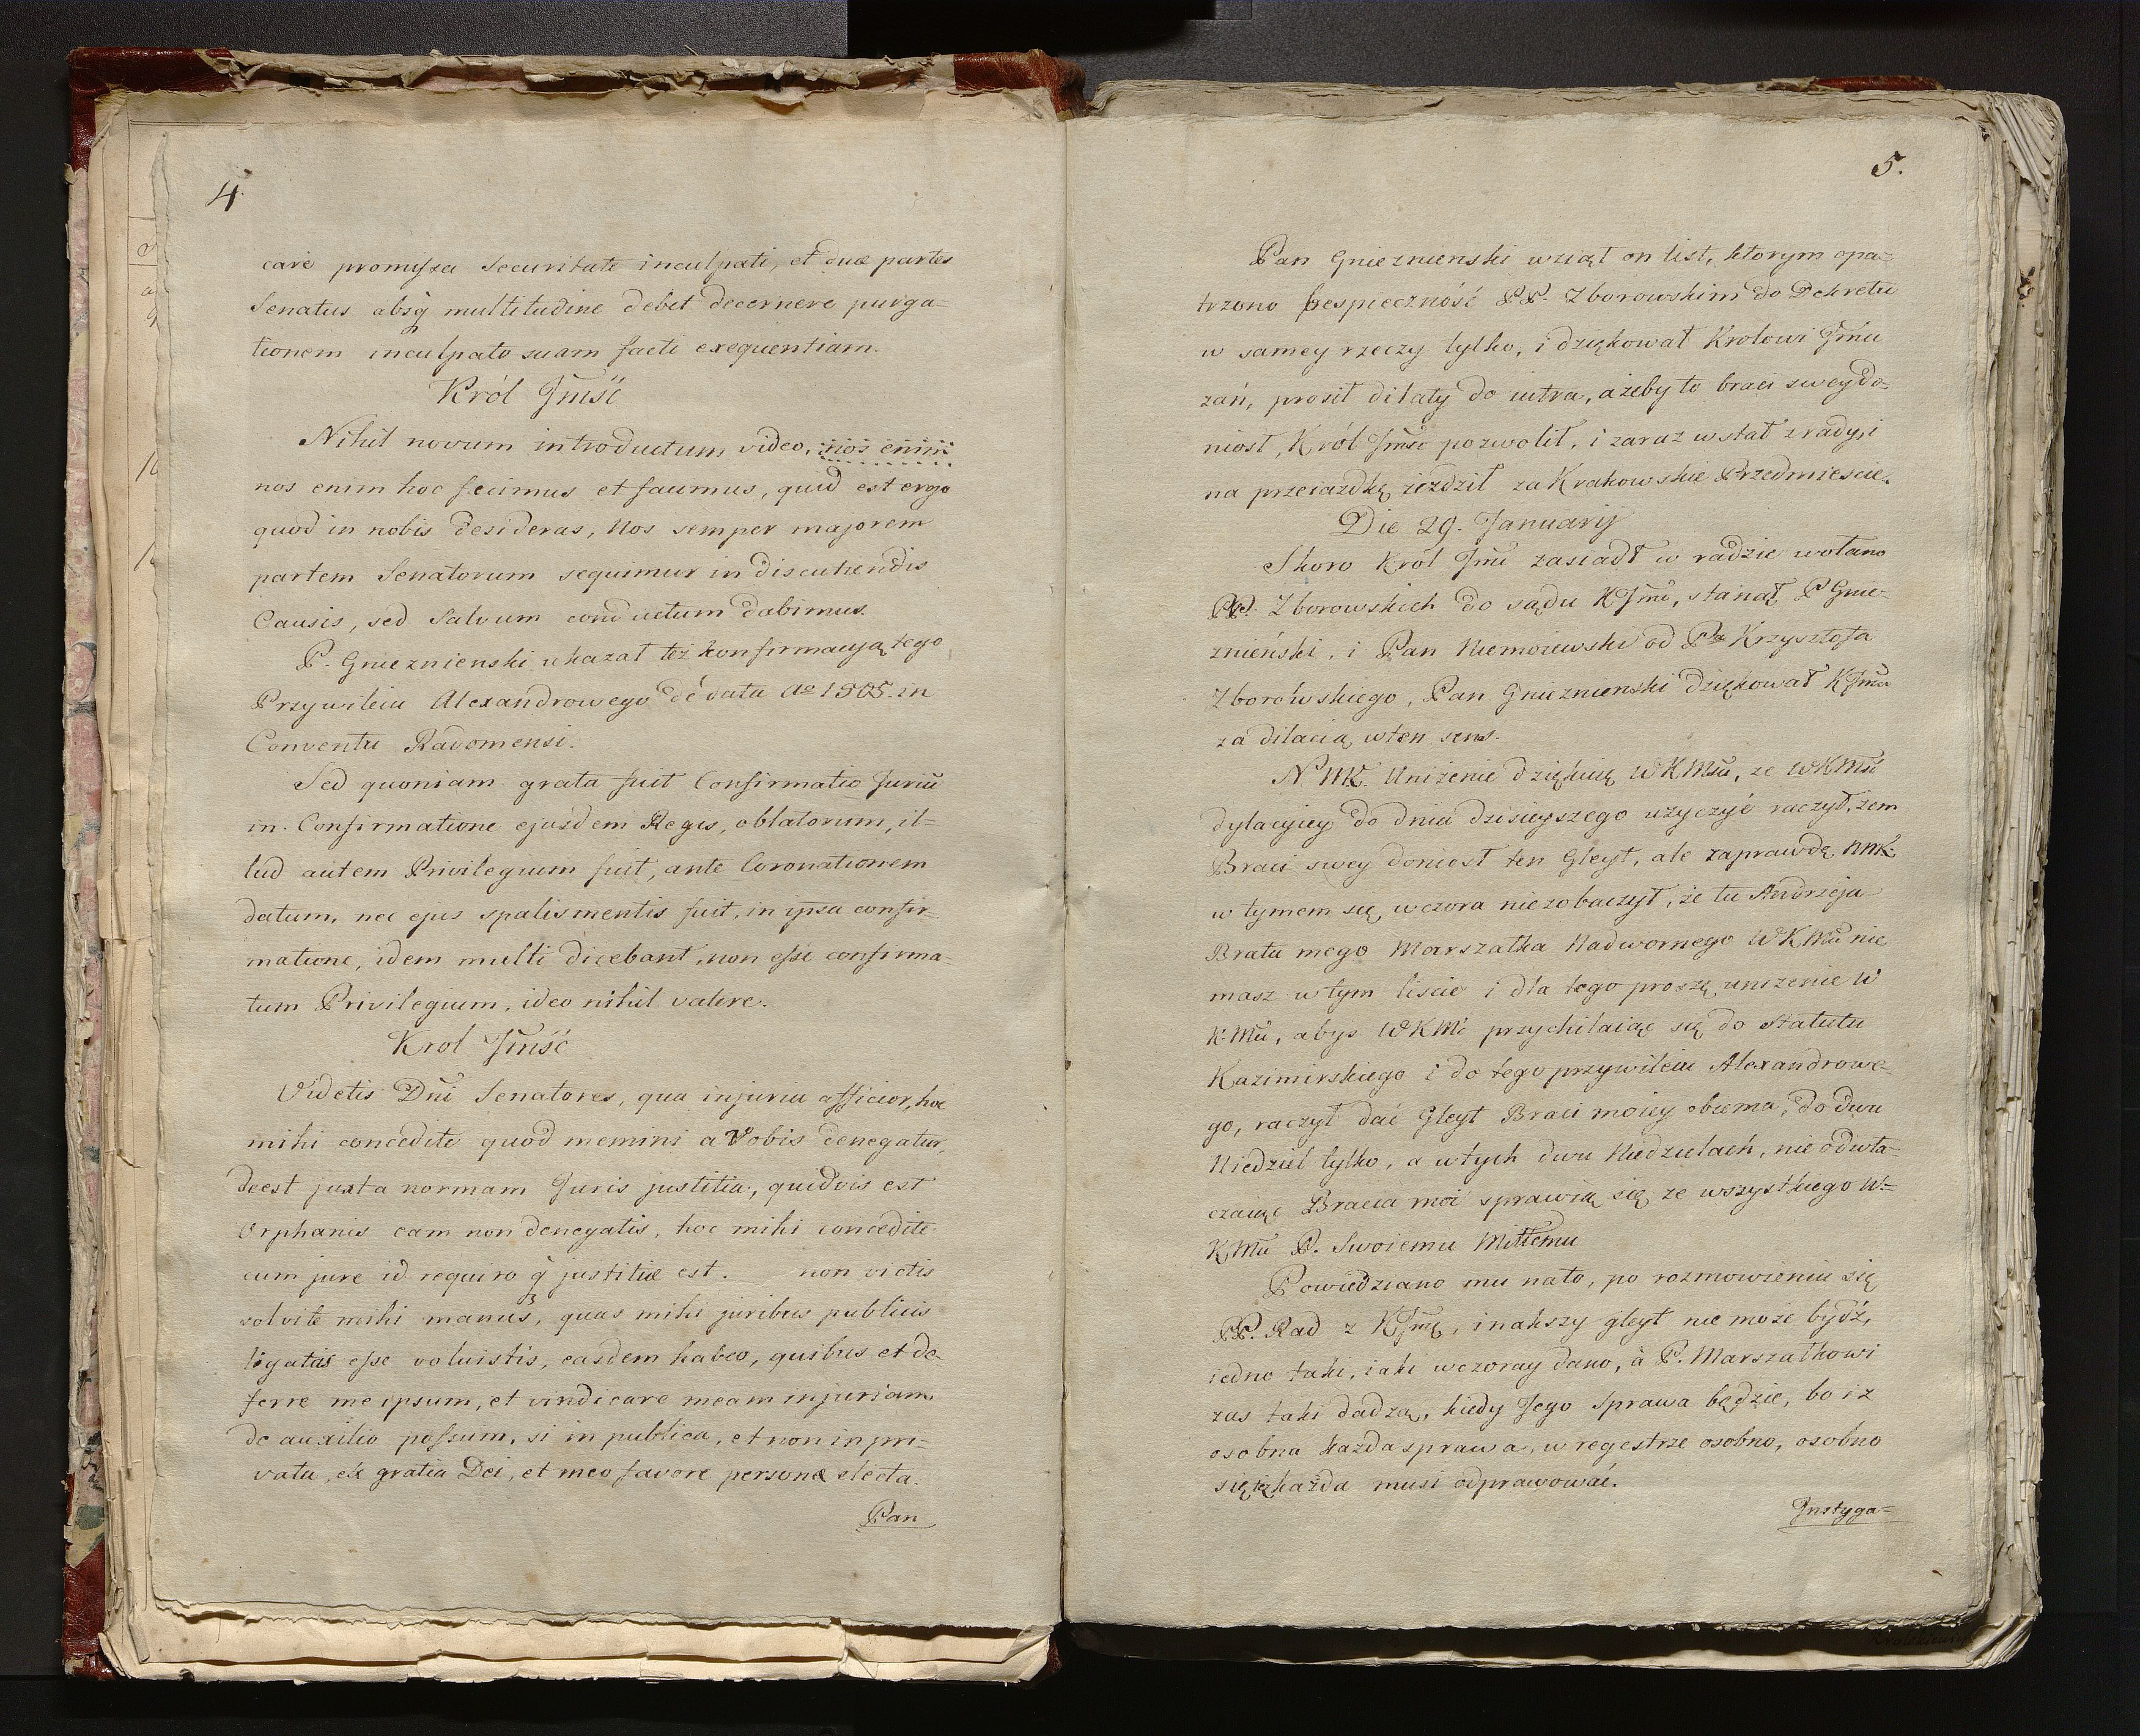 4.
care promissa Securitate inculpati, et duæ partes
Senatus absq́ multitudine debet decernere purga=
tionem inculpato suam facti exequentiam.
Król Jmść
Nihil novum introductum video, nos enim
nos enim hoc fecimus et faumus, quid est ergo
quod in nobis desideras, Nos semper majorem
partem Senatorum sequimur in discutiendis
Causis, sed Salvum conductum dabimus.
P. Gnieznienski ukazał też konfirmacyą tego
Przywileiu Alexandrowego de data Ao 1505. in
Conventu Radomensi.
Sed quoniam grata fuit Confirmatio Juriū
in. Confirmatione ejusdem Regis, oblatorum, il=
lud autem Privilegium fuit, ante Coronationem
datum, nec ejus spalis mentis fuit, in ipsa confir=
matione, idem multi dicebant, non esse confirma=
tum Privilegium, ideo nihil valere.
Krol Jmść
Videtis Dni Senatores, qua injuria afficior, hoc
mihi concedite quod memini a Vobis denegatur,
deest juxta normam Juris justitia, quidvis est
Orphanis eam non denegatis, hoc mihi concedite
cum jure id requiro q́ justitiæ est. non victis
solvite mihi manus, quas mihi juribus publicis
ligatas esse voluistis, easdem habeo, quibus et de=
ferre me ipsum, et vindicare meam injuriam
de auxilio possum, si in publica, et non in pri=
vata, ex gratia Dei, et meo favore personæ electa.
Pan
5.
Pan Gnieznienski wziął on list, ktorym opa=
trzono bespieczność PP. Zborowskim do Dekretu
w samey rzeczy tylko, i dziękował Krolowi Jmću
zań, prosił dilaty do iutra, ażeby to braci swey do=
niosł, Król Jmść pozwolił, i zaraz wstał z rady, i
na przeiazdkę ieździł za Krakowskie Przedmiescie.
Die 29. Januarij
Skoro Król Jmć zasiadł w radzie wołano
PP. Zborowskich do sądu KJmć, stanął P Gnie=
znieński, i Pan Niemoiewski od Pa Krzysztofa
Zborowskiego, Pan Gnieznienski dziękował KJmću
za dilacią w ten sens.
N MK. Uniżenie dziękuię WKMću, ze WKMść
dylacyiey do dnia dzisieyszego użyczyć raczył, zem
Braci swey doniosł ten Gleyt, ale zaprawdę NMK.
w tymem się wczora niezobaczył, że tu Andrzeja
Brata mego Marszałka Nadwornego WKMći nie
masz w tym liscie i dla tego proszę unizenie W
K.Mći, abyś WKMć przychilaiąc się do Statutu
Kazimirskiego i do tego przywileiu Alexandrowe=
go, raczył dać Gleyt Braci moiey obiema, do dwu
Niedziel tylko, a w tych dwu Niedzielach, nie odwła=
czaiąc Bracia moi sprawią się ze wszystkiego W=
KMći P. Swoiemu Miłłemu
Powiedziano mu nato, po rozmowieniu się
PP. Rad z KJmą, inakszy gleyt nie może bydź,
iedno taki, iaki wczoray dano, à P. Marszałkowi
zas taki dadzą, kiedy Jego Sprawa będzie, bo iz
osobna każda sprawa, w regestrze osobno, osobno
się też każda musi odprawować.
Instyga=